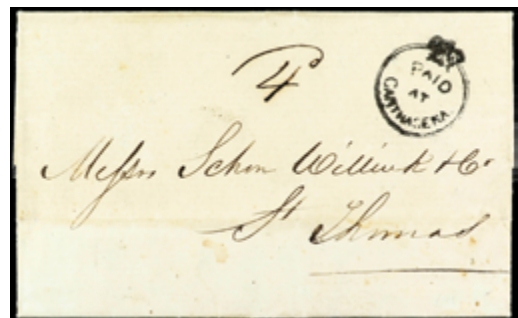 4
PAID
AT
CARTHAGENA
Messrs Schon Willink & Co
St Thomas